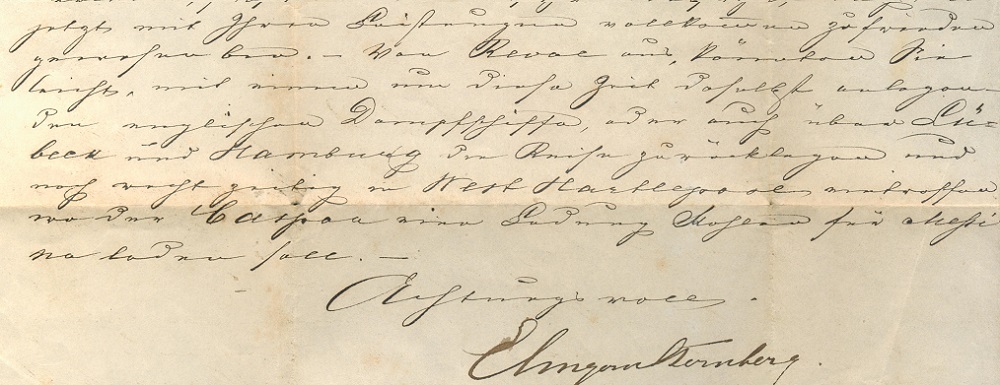 jetzt mit Ihren Leistungen vollkommen zufrieden
gewesen bin. – Von Reval aus, könnten Sie
leicht, mit einem um diese Zeit daselbst anlegen
den englischen Dampfschiffe, oder auch über Lü-
beck und Hamburg die Reise zurücklegen und
noch recht zeitig in West Hartlepool eintreffen
wo der Caspar eine Ladung Kohlen für Messi
na laden soll. –
Achtungsvoll.
Ungern Sternberg.